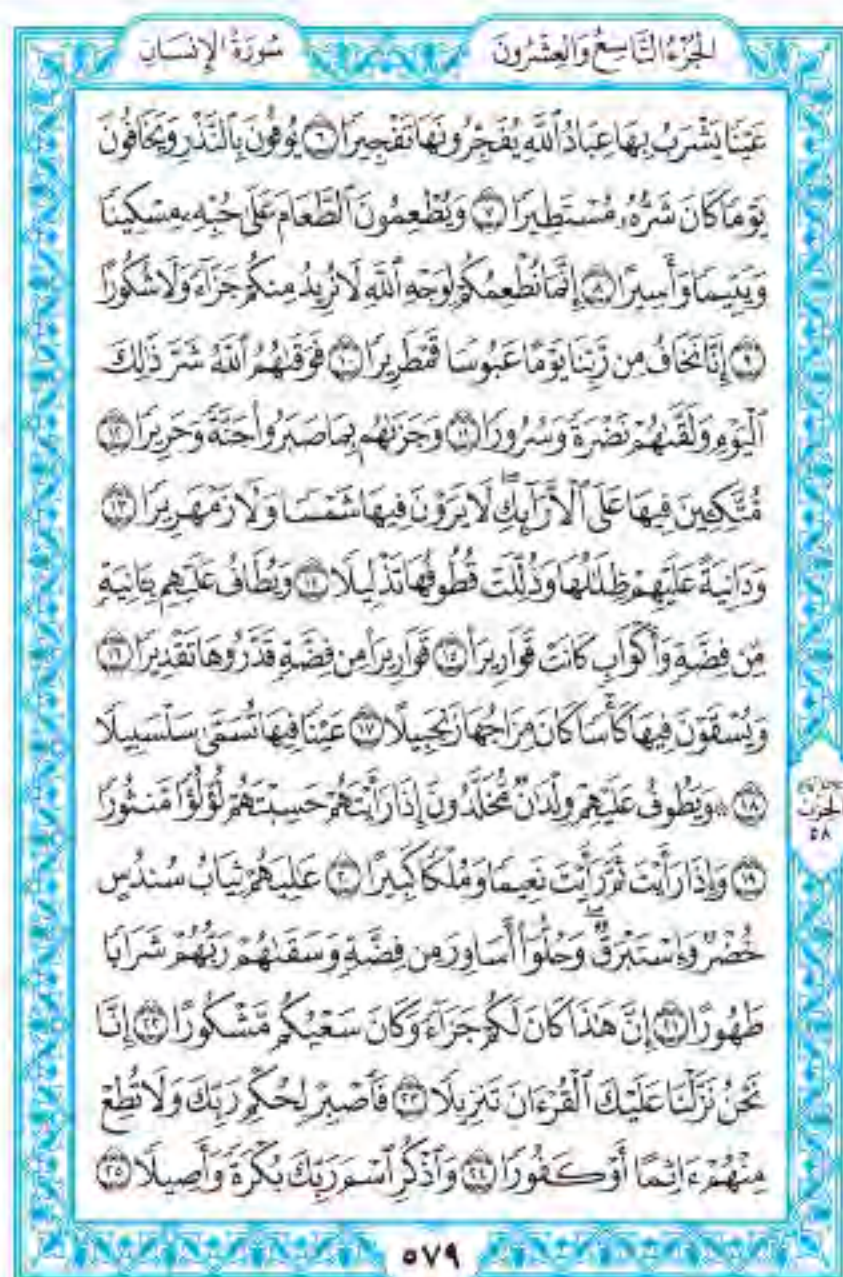 الجُزْءُ التَّاسِعُ وَالعِشْرُونَ
سُورَةُ الإِنسَانِ
عَيْنًا يَشْرَبُ بِهَا عِبَادُ ٱللَّهِ يُفَجِّرُونَهَا تَفْجِيرًا ٦ يُوفُونَ بِٱلنَّذْرِ وَيَخَافُونَ
يَوْمًا كَانَ شَرُّهُۥ مُسْتَطِيرًا ٧ وَيُطْعِمُونَ ٱلطَّعَامَ عَلَىٰ حُبِّهِۦ مِسْكِينًا
وَيَتِيمًا وَأَسِيرًا ٨ إِنَّمَا نُطْعِمُكُمْ لِوَجْهِ ٱللَّهِ لَا نُرِيدُ مِنكُمْ جَزَآءً وَلَا شُكُورًا
٩ إِنَّا نَخَافُ مِن رَّبِّنَا يَوْمًا عَبُوسًا قَمْطَرِيرًا ١٠ فَوَقَىٰهُمُ ٱللَّهُ شَرَّ ذَٰلِكَ
ٱلْيَوْمِ وَلَقَّىٰهُمْ نَضْرَةً وَسُرُورًا ١١ وَجَزَىٰهُم بِمَا صَبَرُوا۟ جَنَّةً وَحَرِيرًا ١٢
مُّتَّكِـِٔينَ فِيهَا عَلَى ٱلْأَرَآئِكِ ۖ لَا يَرَوْنَ فِيهَا شَمْسًا وَلَا زَمْهَرِيرًا ١٣
وَدَانِيَةً عَلَيْهِمْ ظِلَٰلُهَا وَذُلِّلَتْ قُطُوفُهَا تَذْلِيلًا ١٤ وَيُطَافُ عَلَيْهِم بِـَٔانِيَةٍ
مِّن فِضَّةٍ وَأَكْوَابٍ كَانَتْ قَوَارِيرَا۠ ١٥ قَوَارِيرَا۟ مِن فِضَّةٍ قَدَّرُوهَا تَقْدِيرًا ١٦
وَيُسْقَوْنَ فِيهَا كَأْسًا كَانَ مِزَاجُهَا زَنجَبِيلًا ١٧ عَيْنًا فِيهَا تُسَمَّىٰ سَلْسَبِيلًا
١٨ ۞ وَيَطُوفُ عَلَيْهِمْ وِلْدَٰنٌ مُّخَلَّدُونَ إِذَا رَأَيْتَهُمْ حَسِبْتَهُمْ لُؤْلُؤًا مَّنثُورًا
الحِزْبُ
٥٨
١٩ وَإِذَا رَأَيْتَ ثَمَّ رَأَيْتَ نَعِيمًا وَمُلْكًا كَبِيرًا ٢٠ عَٰلِيَهُمْ ثِيَابُ سُندُسٍ
خُضْرٌ وَإِسْتَبْرَقٌ ۖ وَحُلُّوٓا۟ أَسَاوِرَ مِن فِضَّةٍ وَسَقَىٰهُمْ رَبُّهُمْ شَرَابًا
طَهُورًا ٢١ إِنَّ هَٰذَا كَانَ لَكُمْ جَزَآءً وَكَانَ سَعْيُكُم مَّشْكُورًا ٢٢ إِنَّا
نَحْنُ نَزَّلْنَا عَلَيْكَ ٱلْقُرْءَانَ تَنزِيلًا ٢٣ فَٱصْبِرْ لِحُكْمِ رَبِّكَ وَلَا تُطِعْ
مِنْهُمْ ءَاثِمًا أَوْ كَفُورًا ٢٤ وَٱذْكُرِ ٱسْمَ رَبِّكَ بُكْرَةً وَأَصِيلًا ٢٥
٥٧٩